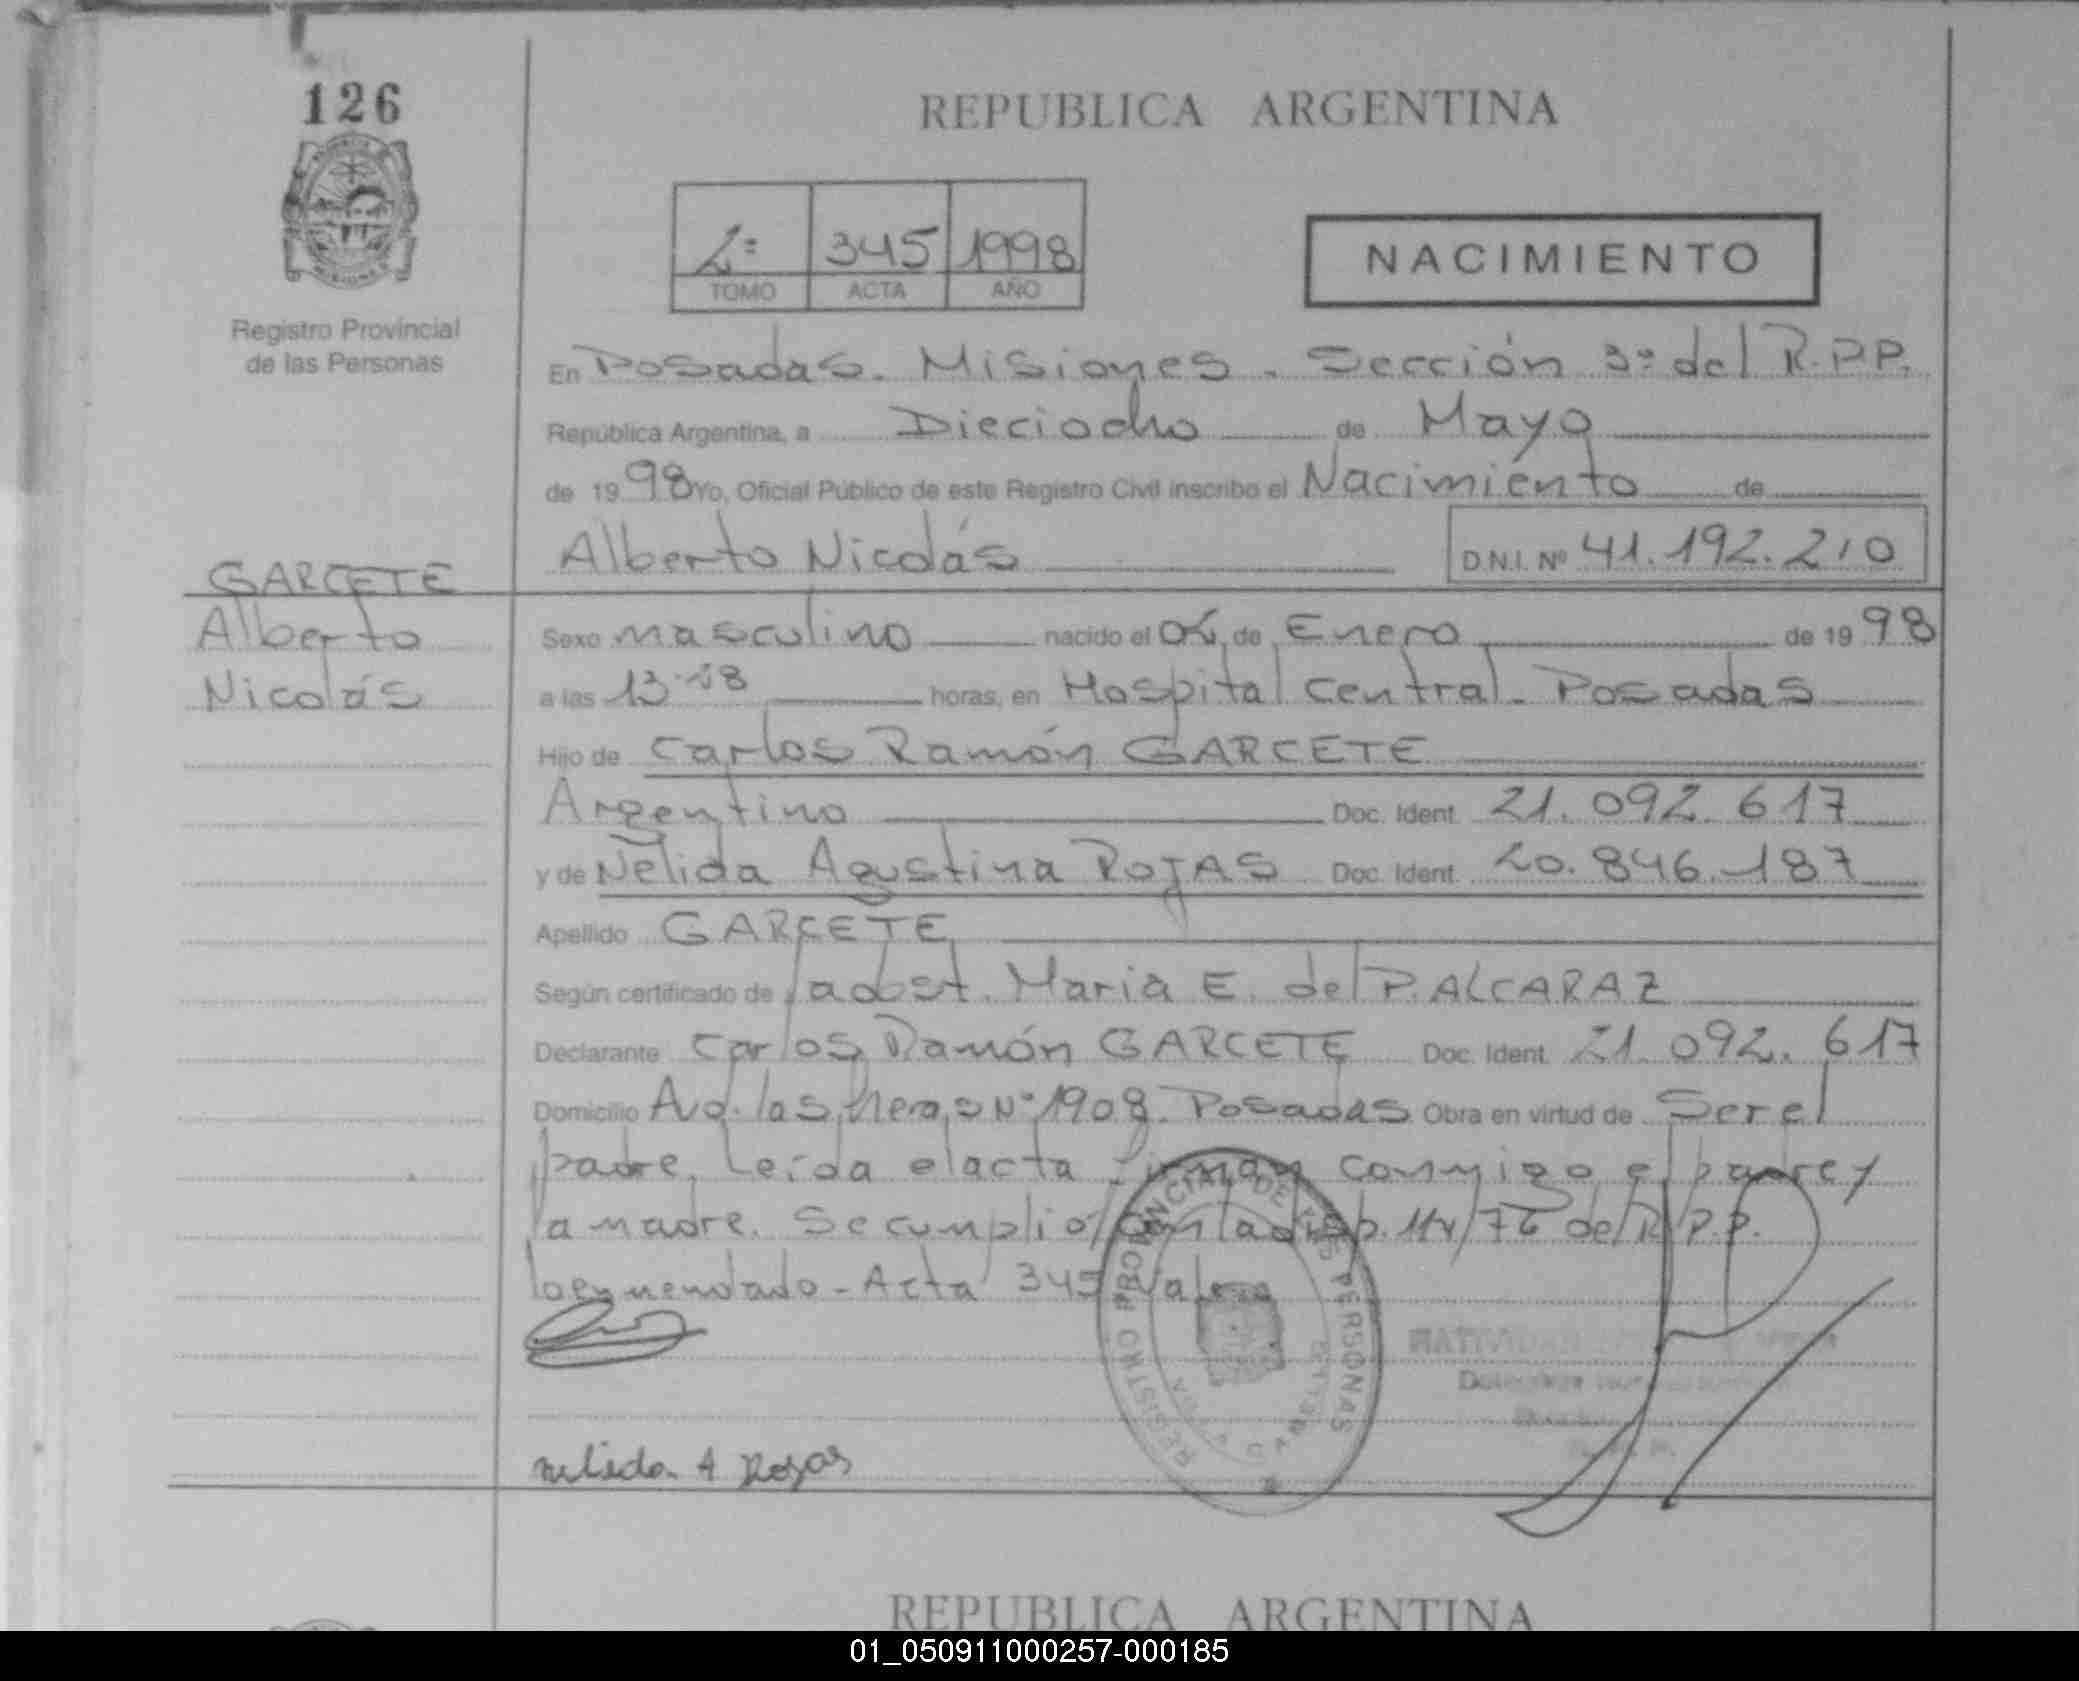 126
REPUBLICA ARGENTINA
2º 345 1998
TOMO ACTA AÑO
NACIMIENTO
Registro Provincial
de las Personas
En Posadas. Misiones. Sección 3º del R.P.P.
República Argentina, a Dieciocho de Mayo
de 1998 Yo, Oficial Público de este Registro Civil inscribo el Nacimiento de
Alberto Nicolás D.N.I. Nº 41.192.210
GARCETE
Alberto
Nicolás
Sexo masculino nacido el de Enero de 1998
a las 13 horas, en Hospital Central. Posadas
Hijo de Carlos Ramón GARCETE
Argentino Doc. Ident. 21.092.617
y de Nélida Agustina ROJAS Doc. Ident. 20.846.187
Apellido GARCETE
Según certificado de la obst. Maria E. del P. ALCARAZ
Declarante Carlos Ramón GARCETE Doc. Ident. 21.092.617
Domicilio Avd. las heras Nº 1908. Posadas Obra en virtud de Ser el
padre. Leída el acta firman conmigo el padre y
la madre. Se cumplió con la disp. 114/76 del R.P.P.
lo enmendado - Acta 345 Vale
REGISTRO PROVINCIAL DE LAS PERSONAS
nelida A Rojas
REPUBLICA ARGENTINA
01_050911000257-000185